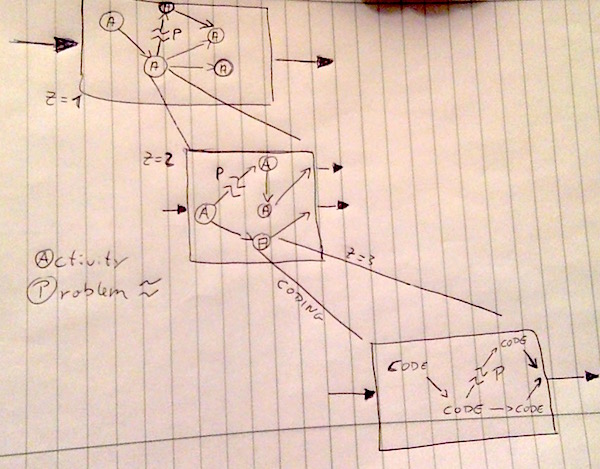 A
A
P
A
A
A
Z=1
Z=2
P
A
A
A
A
Z=3
Activity
Problem ≈
CODING
CODE
CODE
P
CODE → CODE